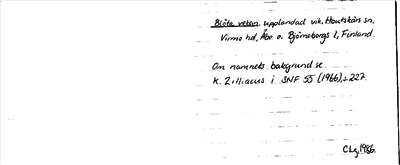 Blöta veken, upplandad vik, Houtskärs sn,
Virmo hd, Åbo o. Björneborgs l, Finland.
Om namnets bakgrund se
K. Zilliacus i SNF 55 (1966), s. 227.
CLg, 1986.